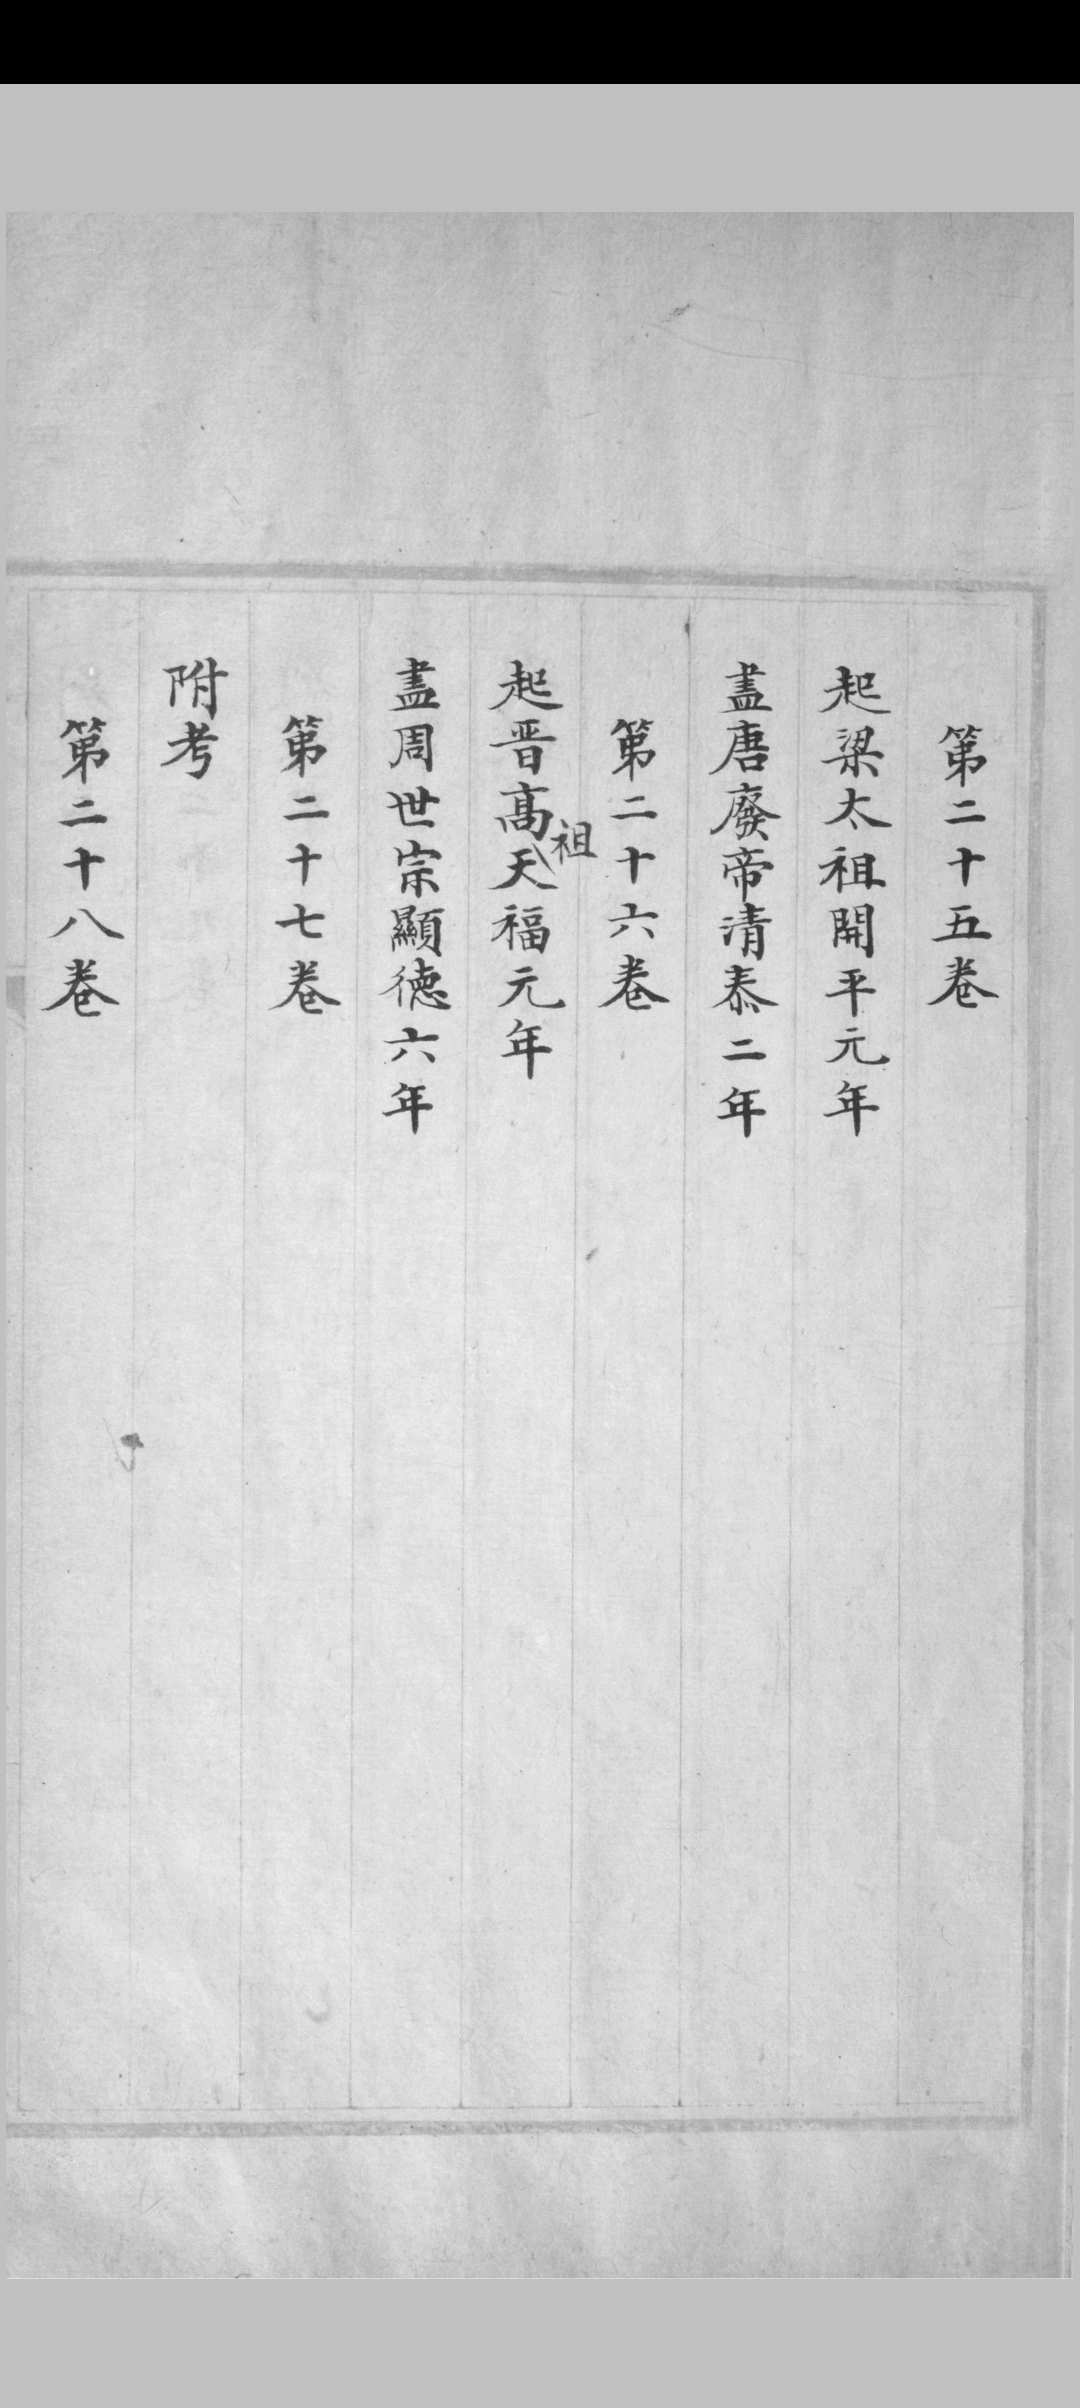 第二十五卷
起梁太祖開平元年
盡唐廢帝清泰二年
第二十六卷
起晋高祖天福元年
盡周世宗顯德六年
第二十七卷
附考
第二十八卷